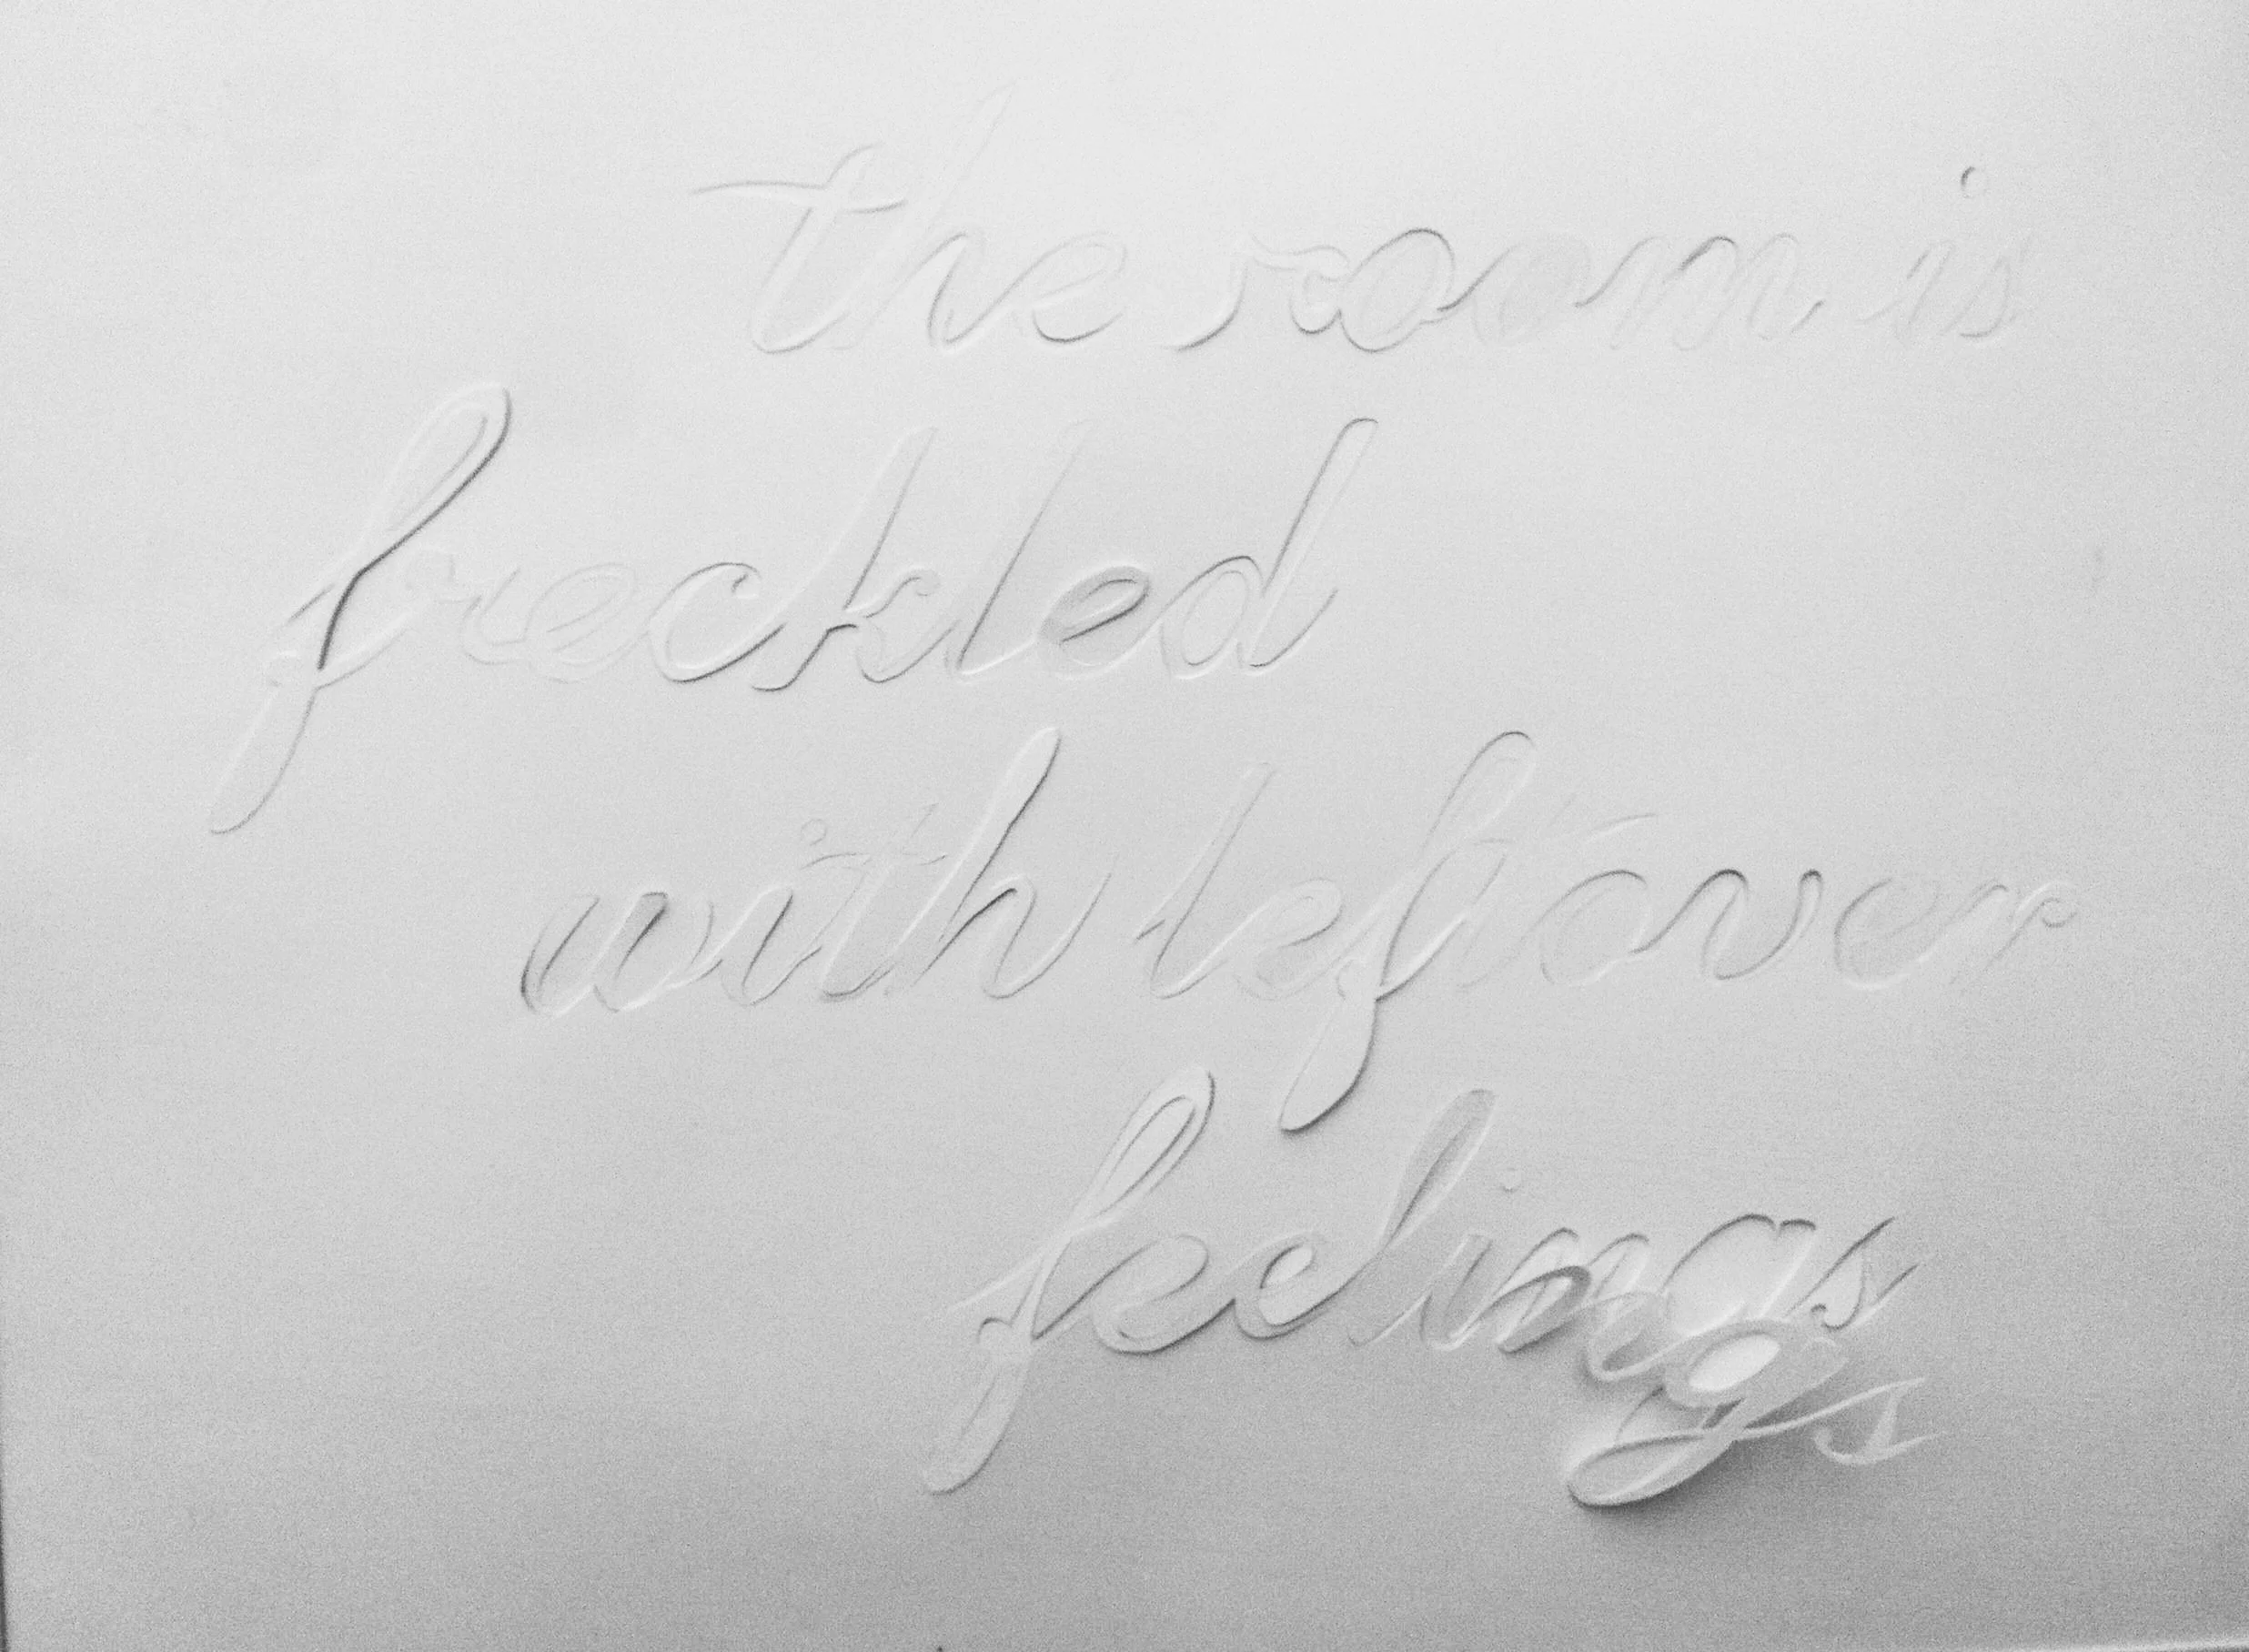 the room is
freckled
with leftover
feelings